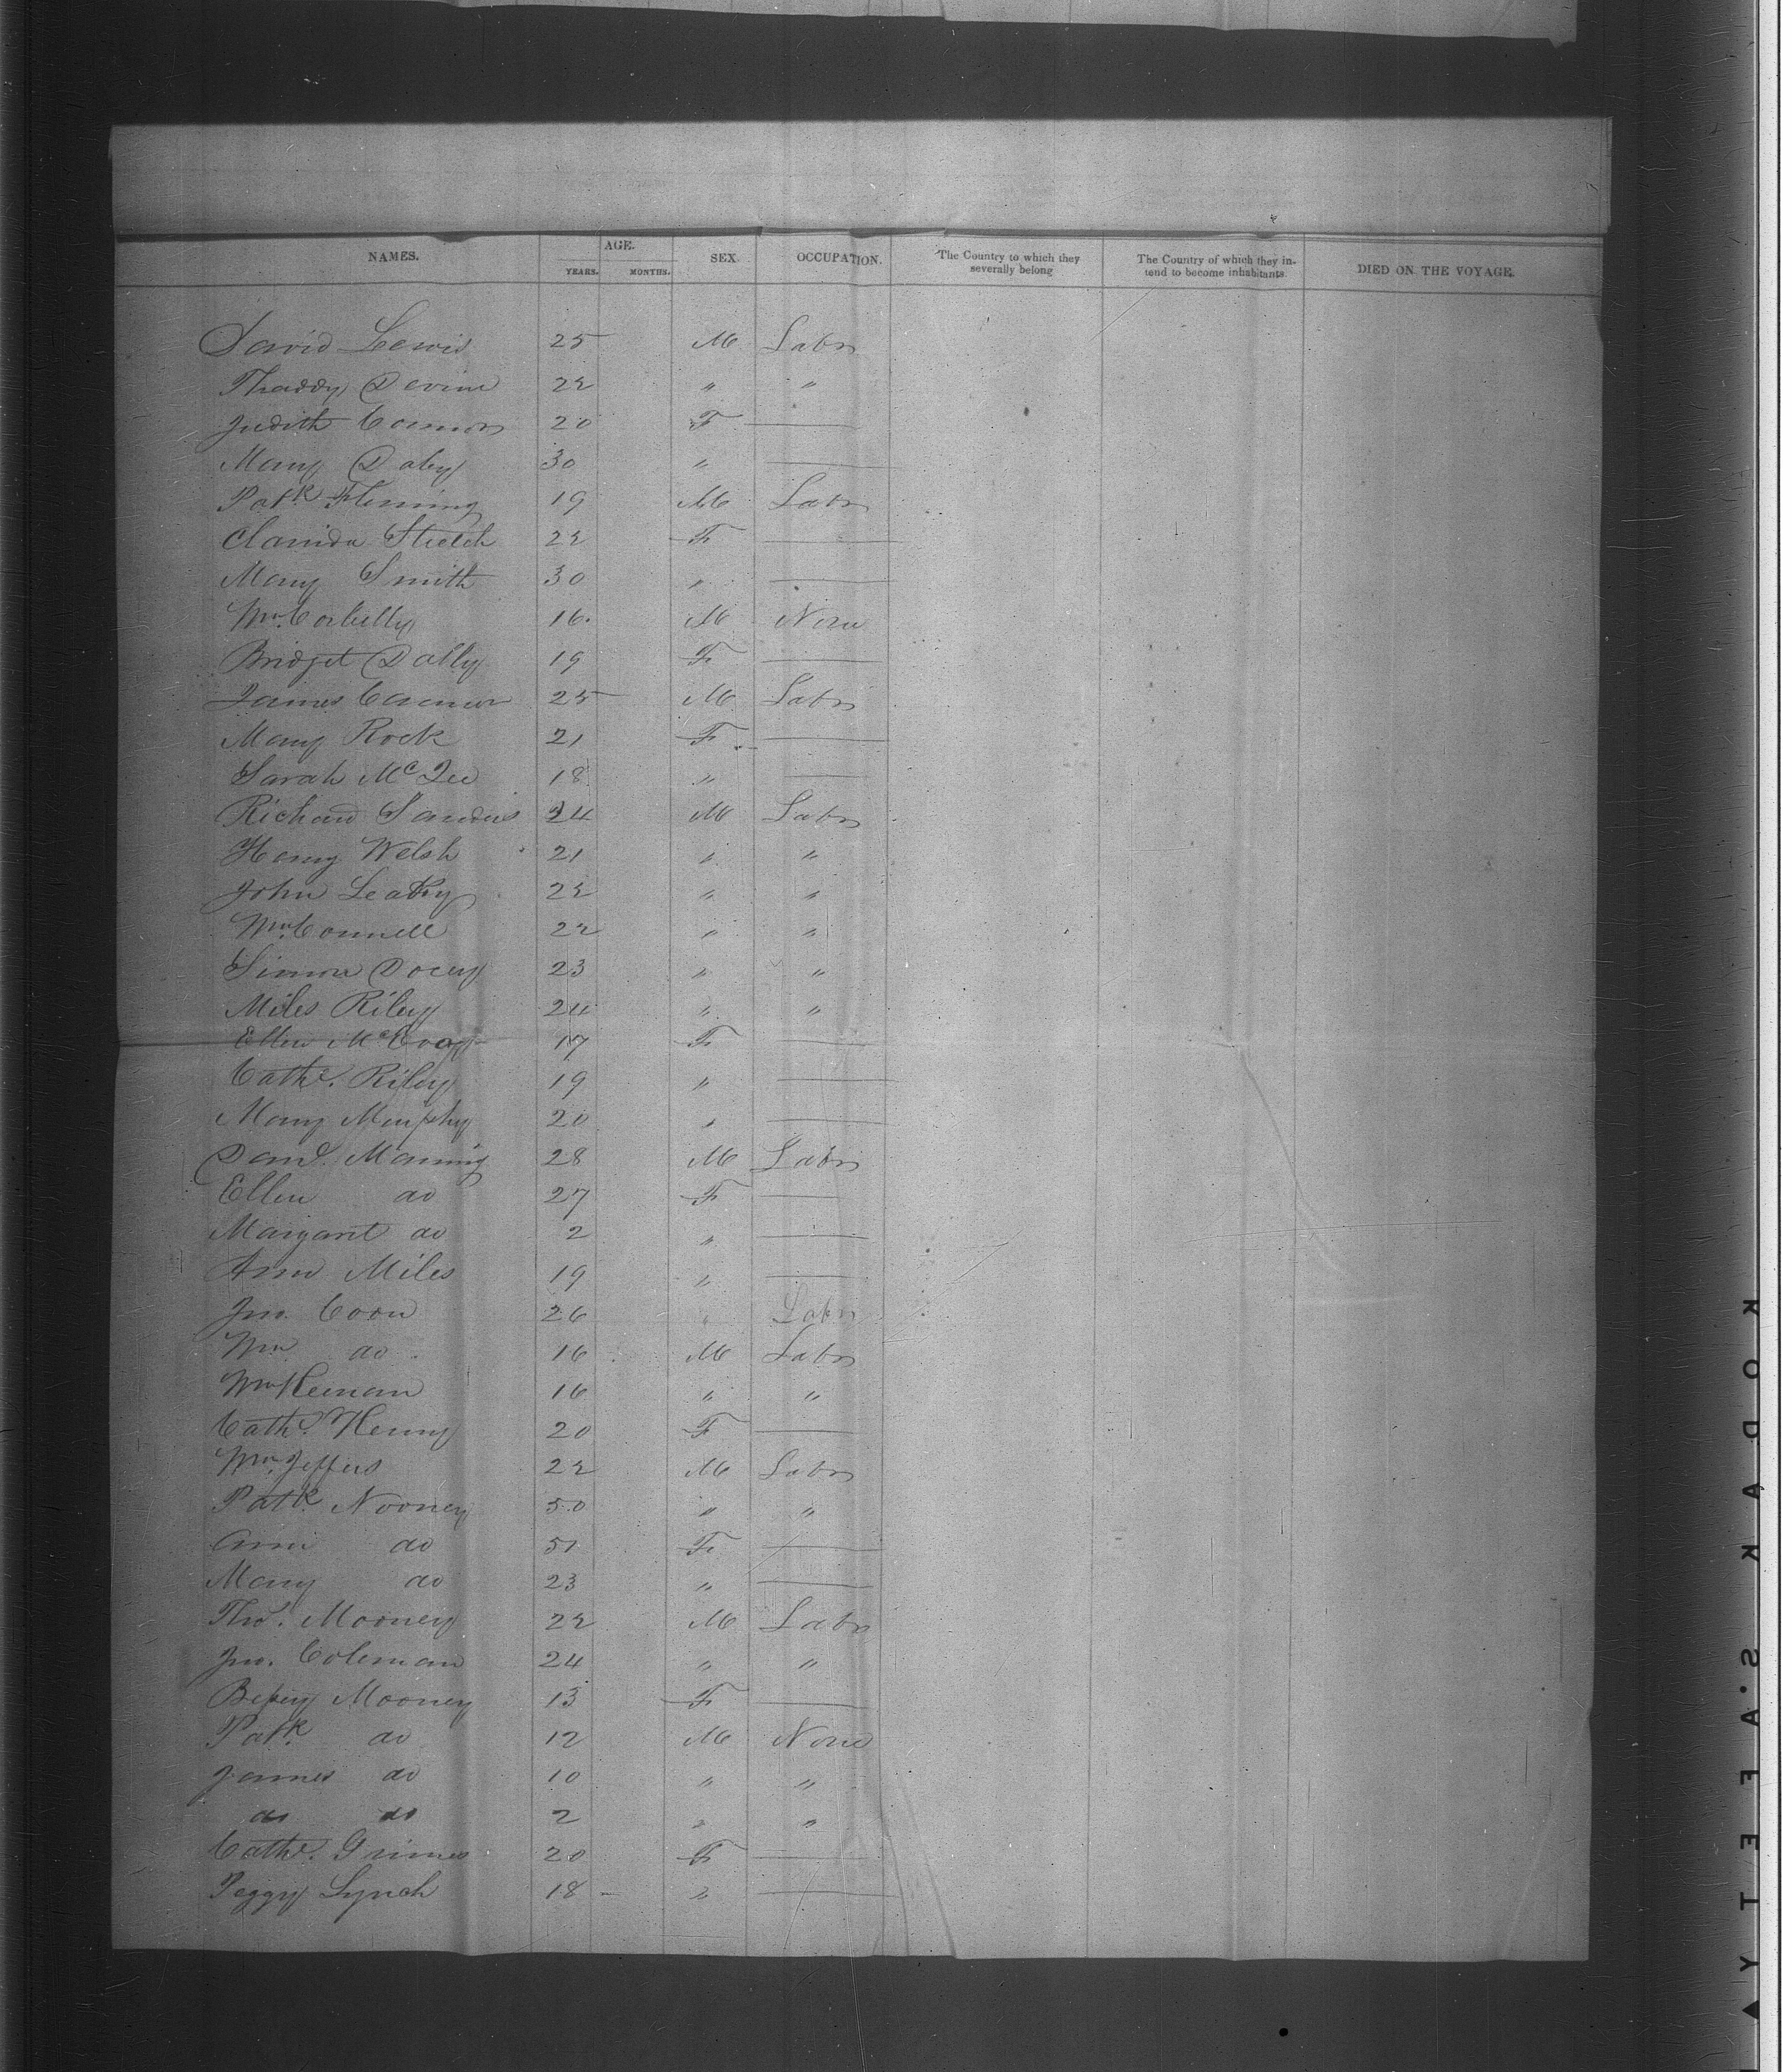 NAMES. AGE. YEARS. MONTHS. SEX. OCCUPATION. The Country to which they severally belong The Country of which they intend to become inhabitants. DIED ON THE VOYAGE.
David Lewis 25 M Labr
Thaddy Devine 22 " "
Judith Connors 20 F
Mary Daley 30 "
Patk Fleming 19 M Labr
22 F
Mary Smith 30 "
Wm. 16. M None
Bridget Dally 19 F
James Connor 25 M Labr
Mary Rock 21 F
Sarah McGee 18 "
Richard Sanders 24 M Labr
Henry Welsh 21 " "
John Leahy 22 " "
Wm. Connell 22 " "
Simon 23 " "
Miles Riley 24 " "
Ellen 17 F
Cathe. Riley 19 "
Mary Murphy 20 "
Danl. Manning 28 M Labr
Ellen do 27 F
Margaret do 2 "
Ann Miles 19 "
Jno. Coon 26 " Labr
Wm do 16 M Labr
Wm Keenan 16 " "
Cathe. Henry 20 F
Wm. Jeffers 22 M Labr
Patk. Nooney 50 " "
Ann do 51 F
Mary do 23 "
Thos. Mooney 22 M Labr
Jno. Coleman 24 " "
Betsey Mooney 13 F
Patk. do 12 M None
James do 10 " "
do do 2 " "
Cathe. Grimes 20 F
Peggy Lynch 18 "
KODAK S.AFETY